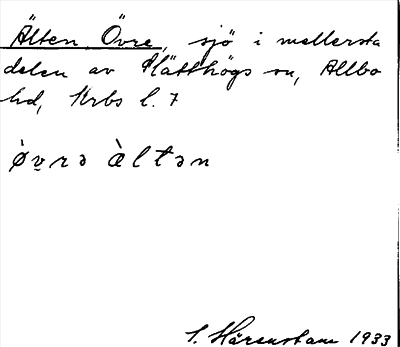 Älten Övre, sjö i mellersta
delen av Slätthögs sn, Allbo
hd, Krbs l. 7
ø̀vrə ὰltən
S. Härenstam 1933